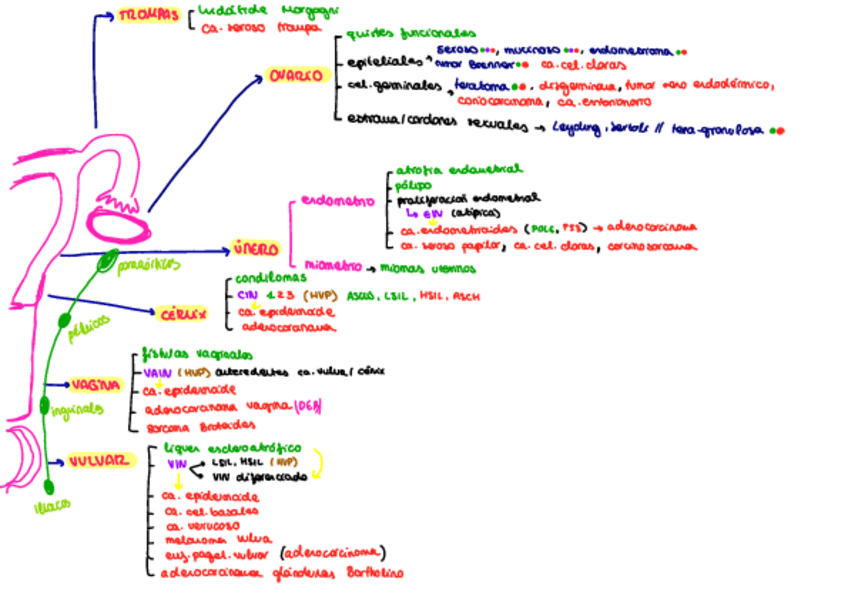 TROMPAS
hidátide Morgagni
ca. seroso trompa
OVARIO
quistes funcionales
epiteliales
seroso, mucinoso, endometrioma
tumor Brenner ca. cel. claras
cel. germinales
teratoma, disgerminoma, tumor seno endodérmico,
coriocarcinoma, ca. embrionario
estroma/cordones sexuales → Leydig, Sertoli // teca-granulosa
ÚTERO
endometrio
atrofia endometrial
pólipo
proliferación endometrial
↳ EIN (atípica)
ca. endometrioides (POLE, P53) → adenocarcinoma
ca. seroso papilar, ca. cel. claras, carcinosarcoma
miometrio → miomas uterinos
paraaórticos
CÉRVIX
condilomas
CIN 1 2 3 (HVP) ASCUS, LSIL, HSIL, ASCH
ca. epidermoide
adenocarcinoma
pélvicos
VAGINA
fístulas vaginales
VAIN (HVP) antecedentes ca. vulva/cérvix
ca. epidermoide
adenocarcinoma vagina (DEB)
sarcoma Botroides
inguinales
VULVAR
liquen escleroatrófico
VIN
LSIL, HSIL (HVP)
VIN diferenciado
ca. epidermoide
ca. cel. basales
ca. verucoso
melanoma vulva
enf. paget vulvar (adenocarcinoma)
adenocarcinoma glándulas Bartholino
ilíacos